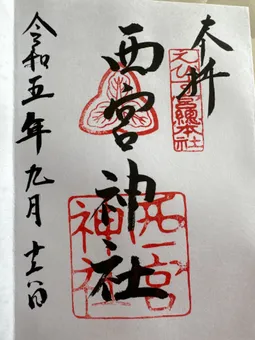 奉拝
えびす宮總本社
西宮神社
西宮
神社
令和五年九月 日